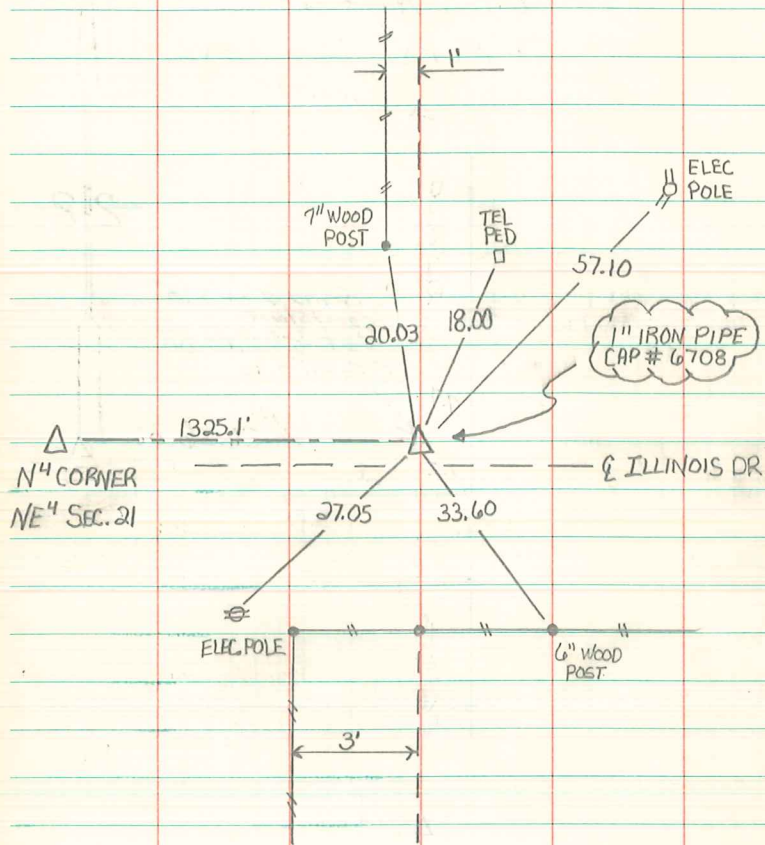 1'
ELEC
POLE
7" WOOD
POST
TEL
PED
57.10
20.03
18.00
1" IRON PIPE
CAP # 6708
1325.1'
N⁴ CORNER
NE⁴ SEC. 21
℄ ILLINOIS DR
27.05
33.60
ELEC. POLE
6" WOOD
POST
3'